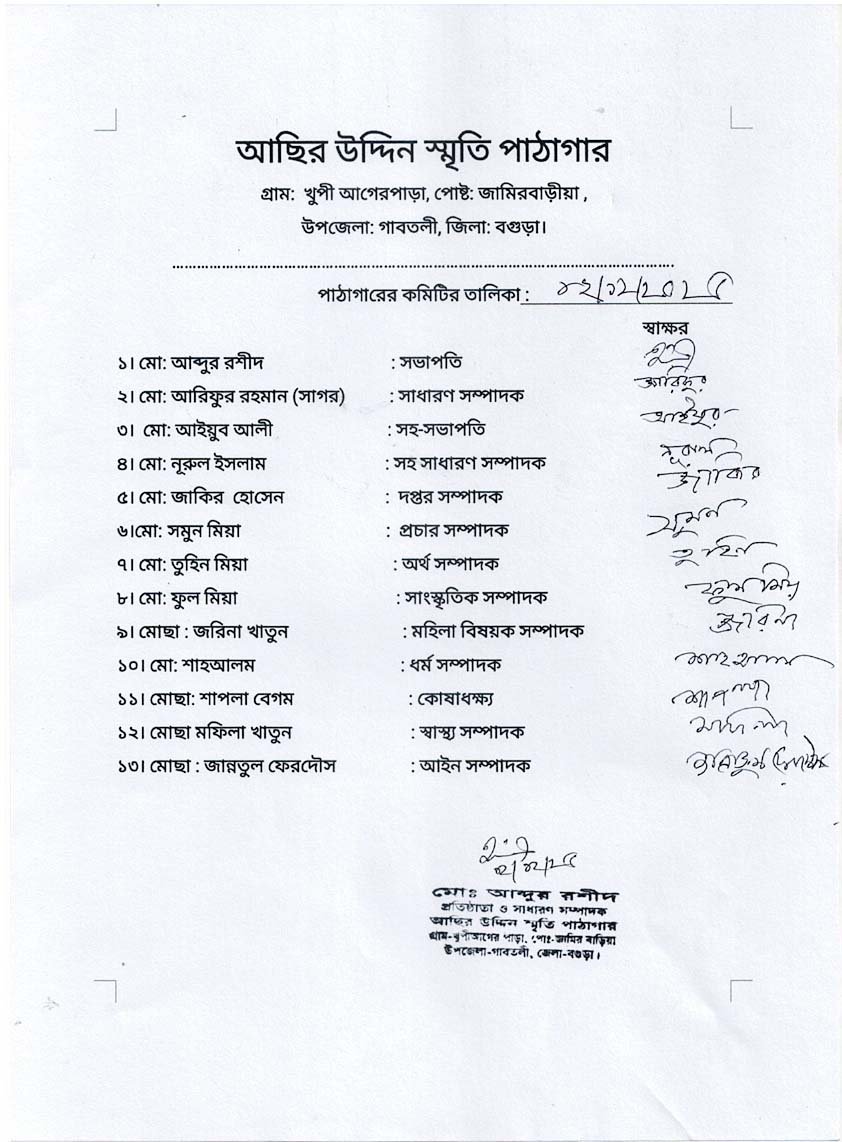 আছির উদ্দিন স্মৃতি পাঠাগার
গ্রাম: খুপী আগেরপাড়া, পোষ্ট: জামিরবাড়ীয়া ,
উপজেলা: গাবতলী, জিলা: বগুড়া।
পাঠাগারের কমিটির তালিকা :
স্বাক্ষর
১। মো: আব্দুর রশীদ : সভাপতি
২। মো: আরিফুর রহমান (সাগর) : সাধারণ সম্পাদক
৩। মো: আইয়ুব আলী : সহ-সভাপতি
৪। মো: নূরুল ইসলাম : সহ সাধারণ সম্পাদক
৫। মো: জাকির হোসেন : দপ্তর সম্পাদক জাকির
৬।মো: সমুন মিয়া : প্রচার সম্পাদক সুমন
৭। মো: তুহিন মিয়া : অর্থ সম্পাদক তুহিন
৮। মো: ফুল মিয়া : সাংস্কৃতিক সম্পাদক ফুল মিয়
৯। মোছা : জরিনা খাতুন : মহিলা বিষয়ক সম্পাদক জরিনা
১০। মো: শাহআলম : ধর্ম সম্পাদক শাহআলম
১১। মোছা: শাপলা বেগম : কোষাধক্ষ্য শাপলা
১২। মোছা মফিলা খাতুন : স্বাস্থ্য সম্পাদক
১৩। মোছা : জান্নতুল ফেরদৌস : আইন সম্পাদক
মোঃ আব্দুর রশীদ
প্রতিষ্ঠাতা ও সাধারণ সম্পাদক
আছির উদ্দিন স্মৃতি পাঠাগার
গ্রাম-খুপীআগের পাড়া, পোঃ-জামির বাড়িয়া
উপজেলা-গাবতলী, জেলা-বগুড়া।